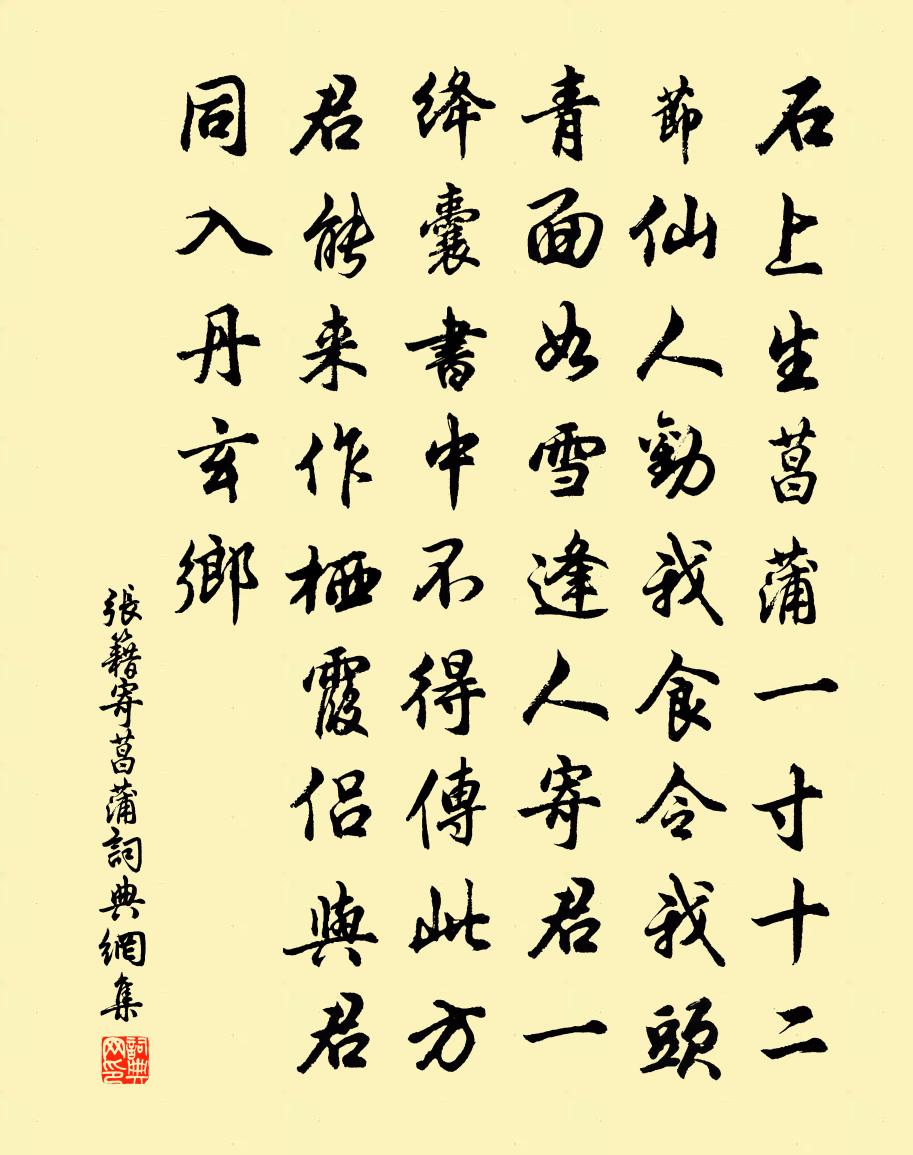 石上生菖蒲一寸十二
節仙人勸我食令我頭
青面如雪逢人寄君一
絳囊書中不得傳此方
君能来作栖霞侣與君
同入丹玄鄉
張籍寄菖蒲詞典網集
詞典网印